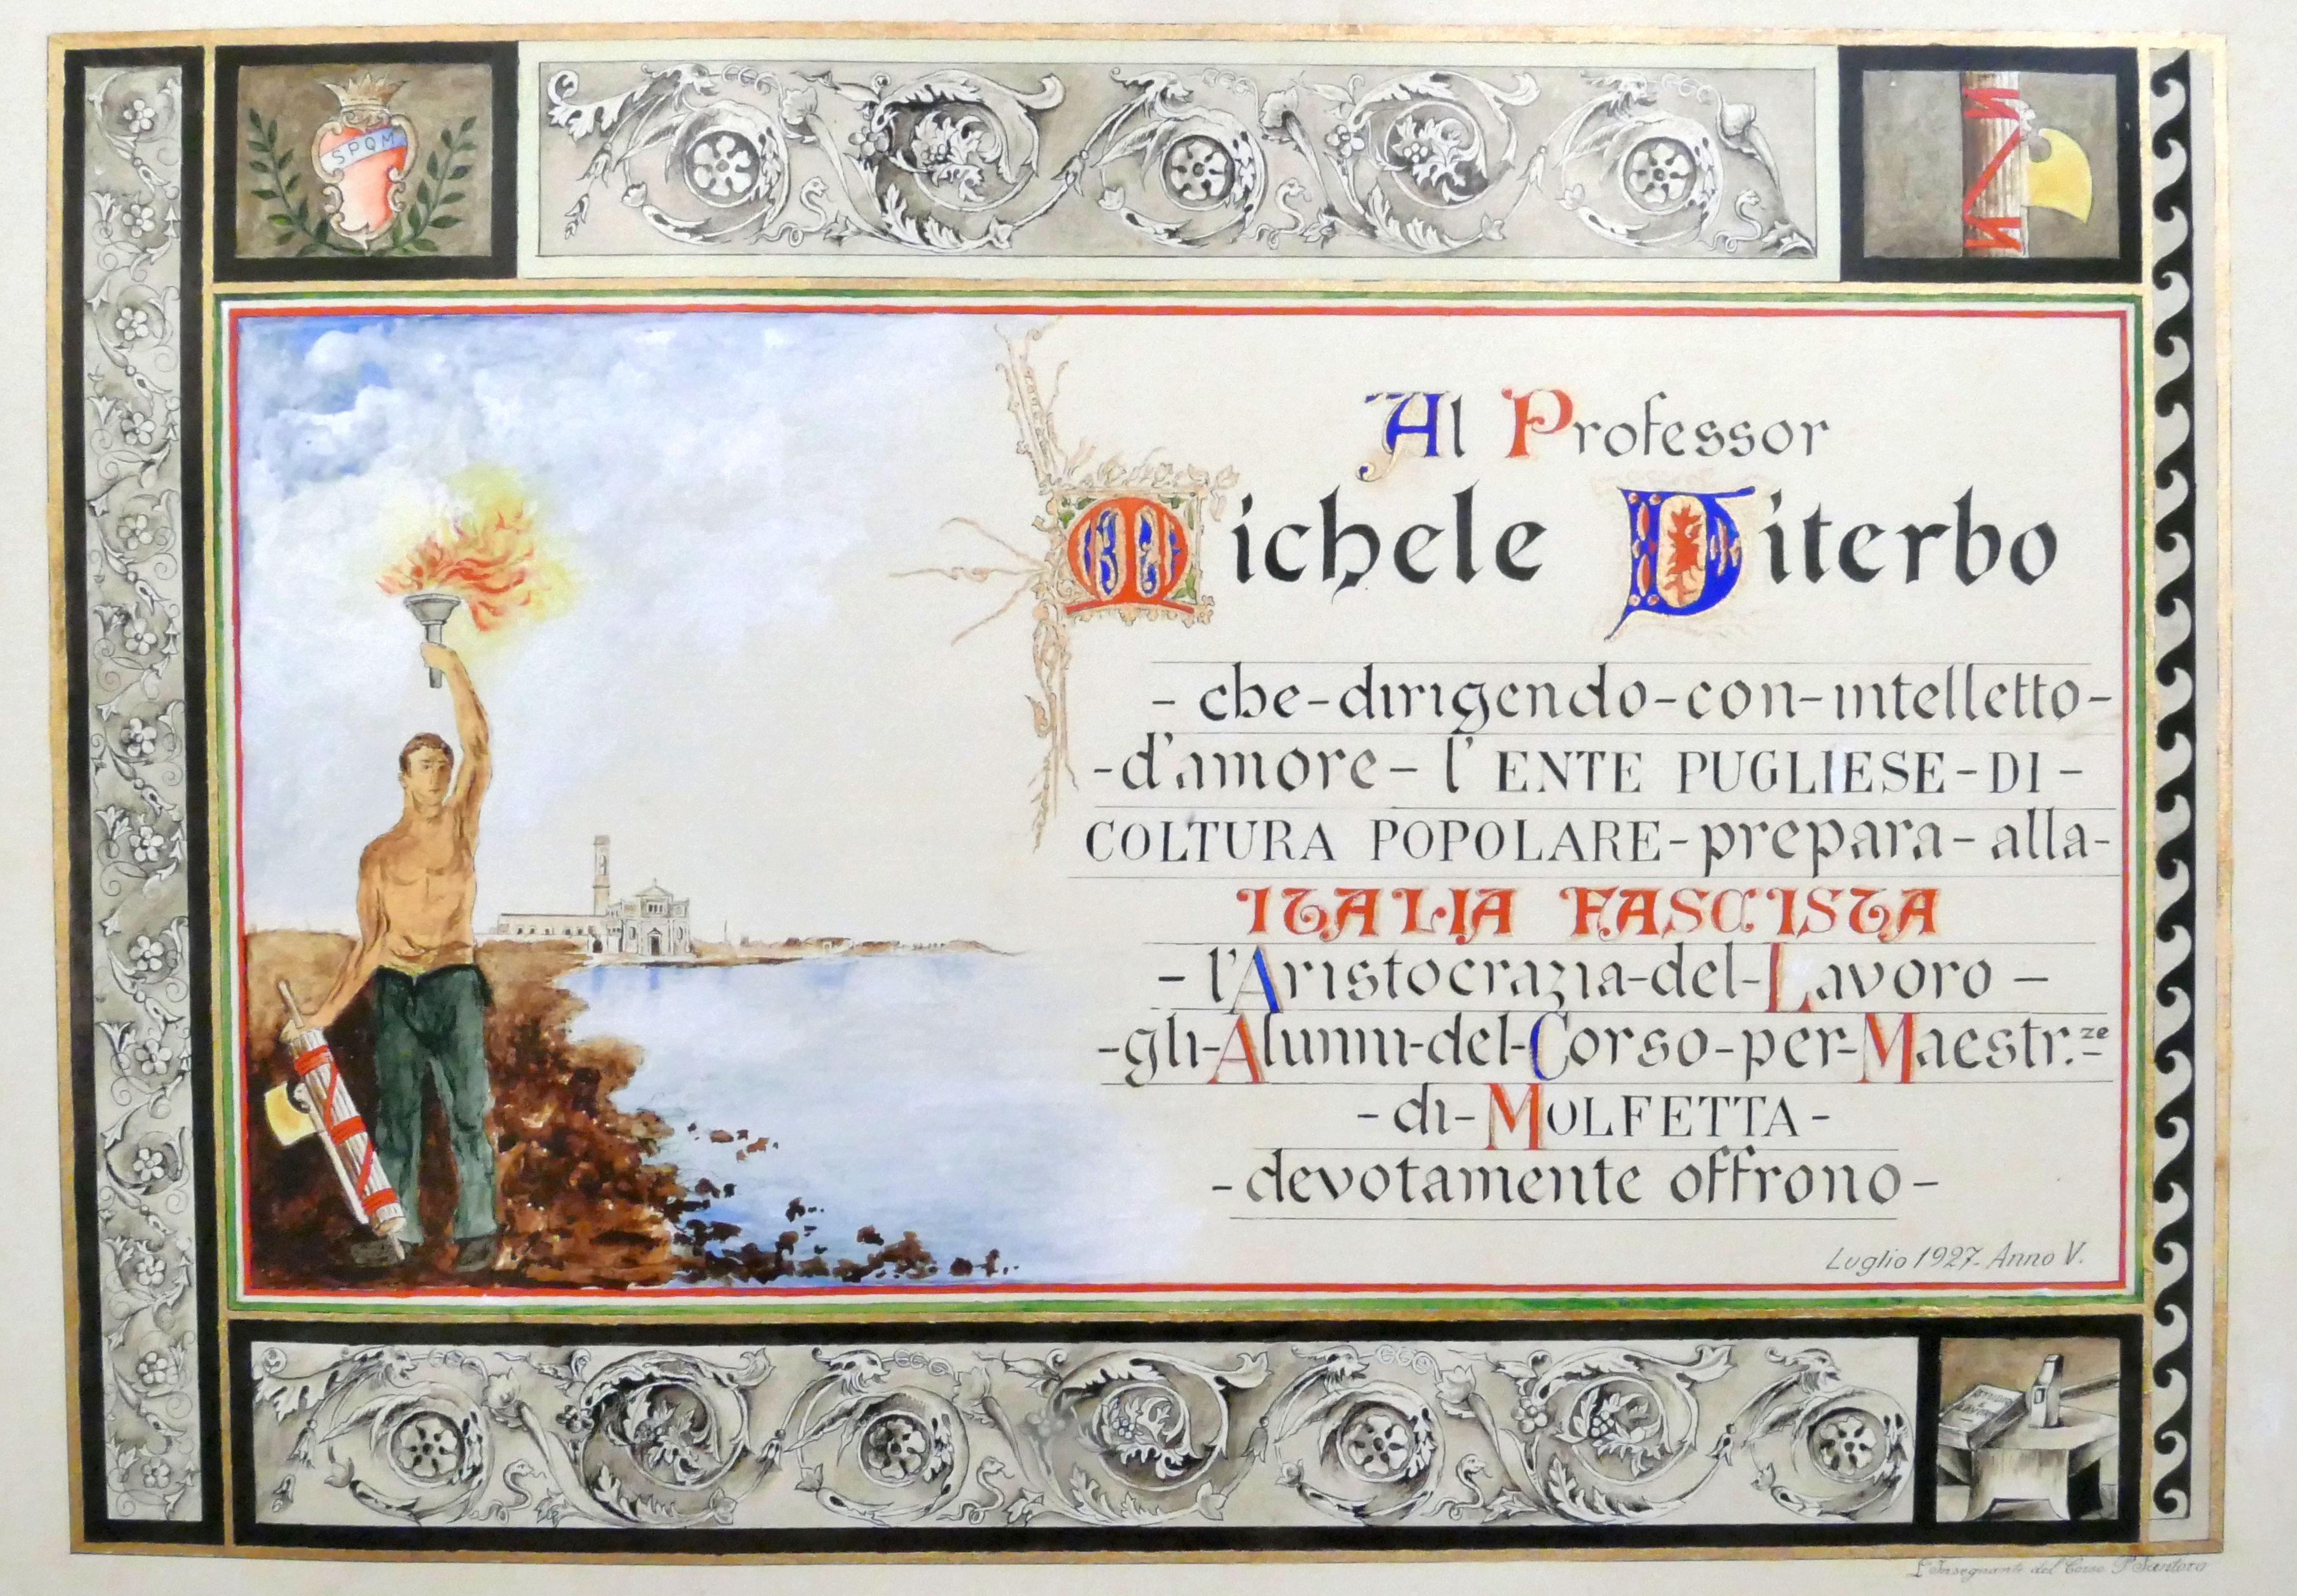 SPQM
Al Professor
Michele Viterbo
- che - dirigendo - con - intelletto -
- d'amore - l' ENTE PUGLIESE - DI -
COLTURA POPOLARE - prepara - alla -
ITALIA FASCISTA
- l'Aristocrazia - del - Lavoro -
- gli - Alunni - del - Corso - per - Maestr.ze -
- di - MOLFETTA -
- devotamente offrono -
Luglio 1927. Anno V.
L'Insegnante del Corso P. Santoro